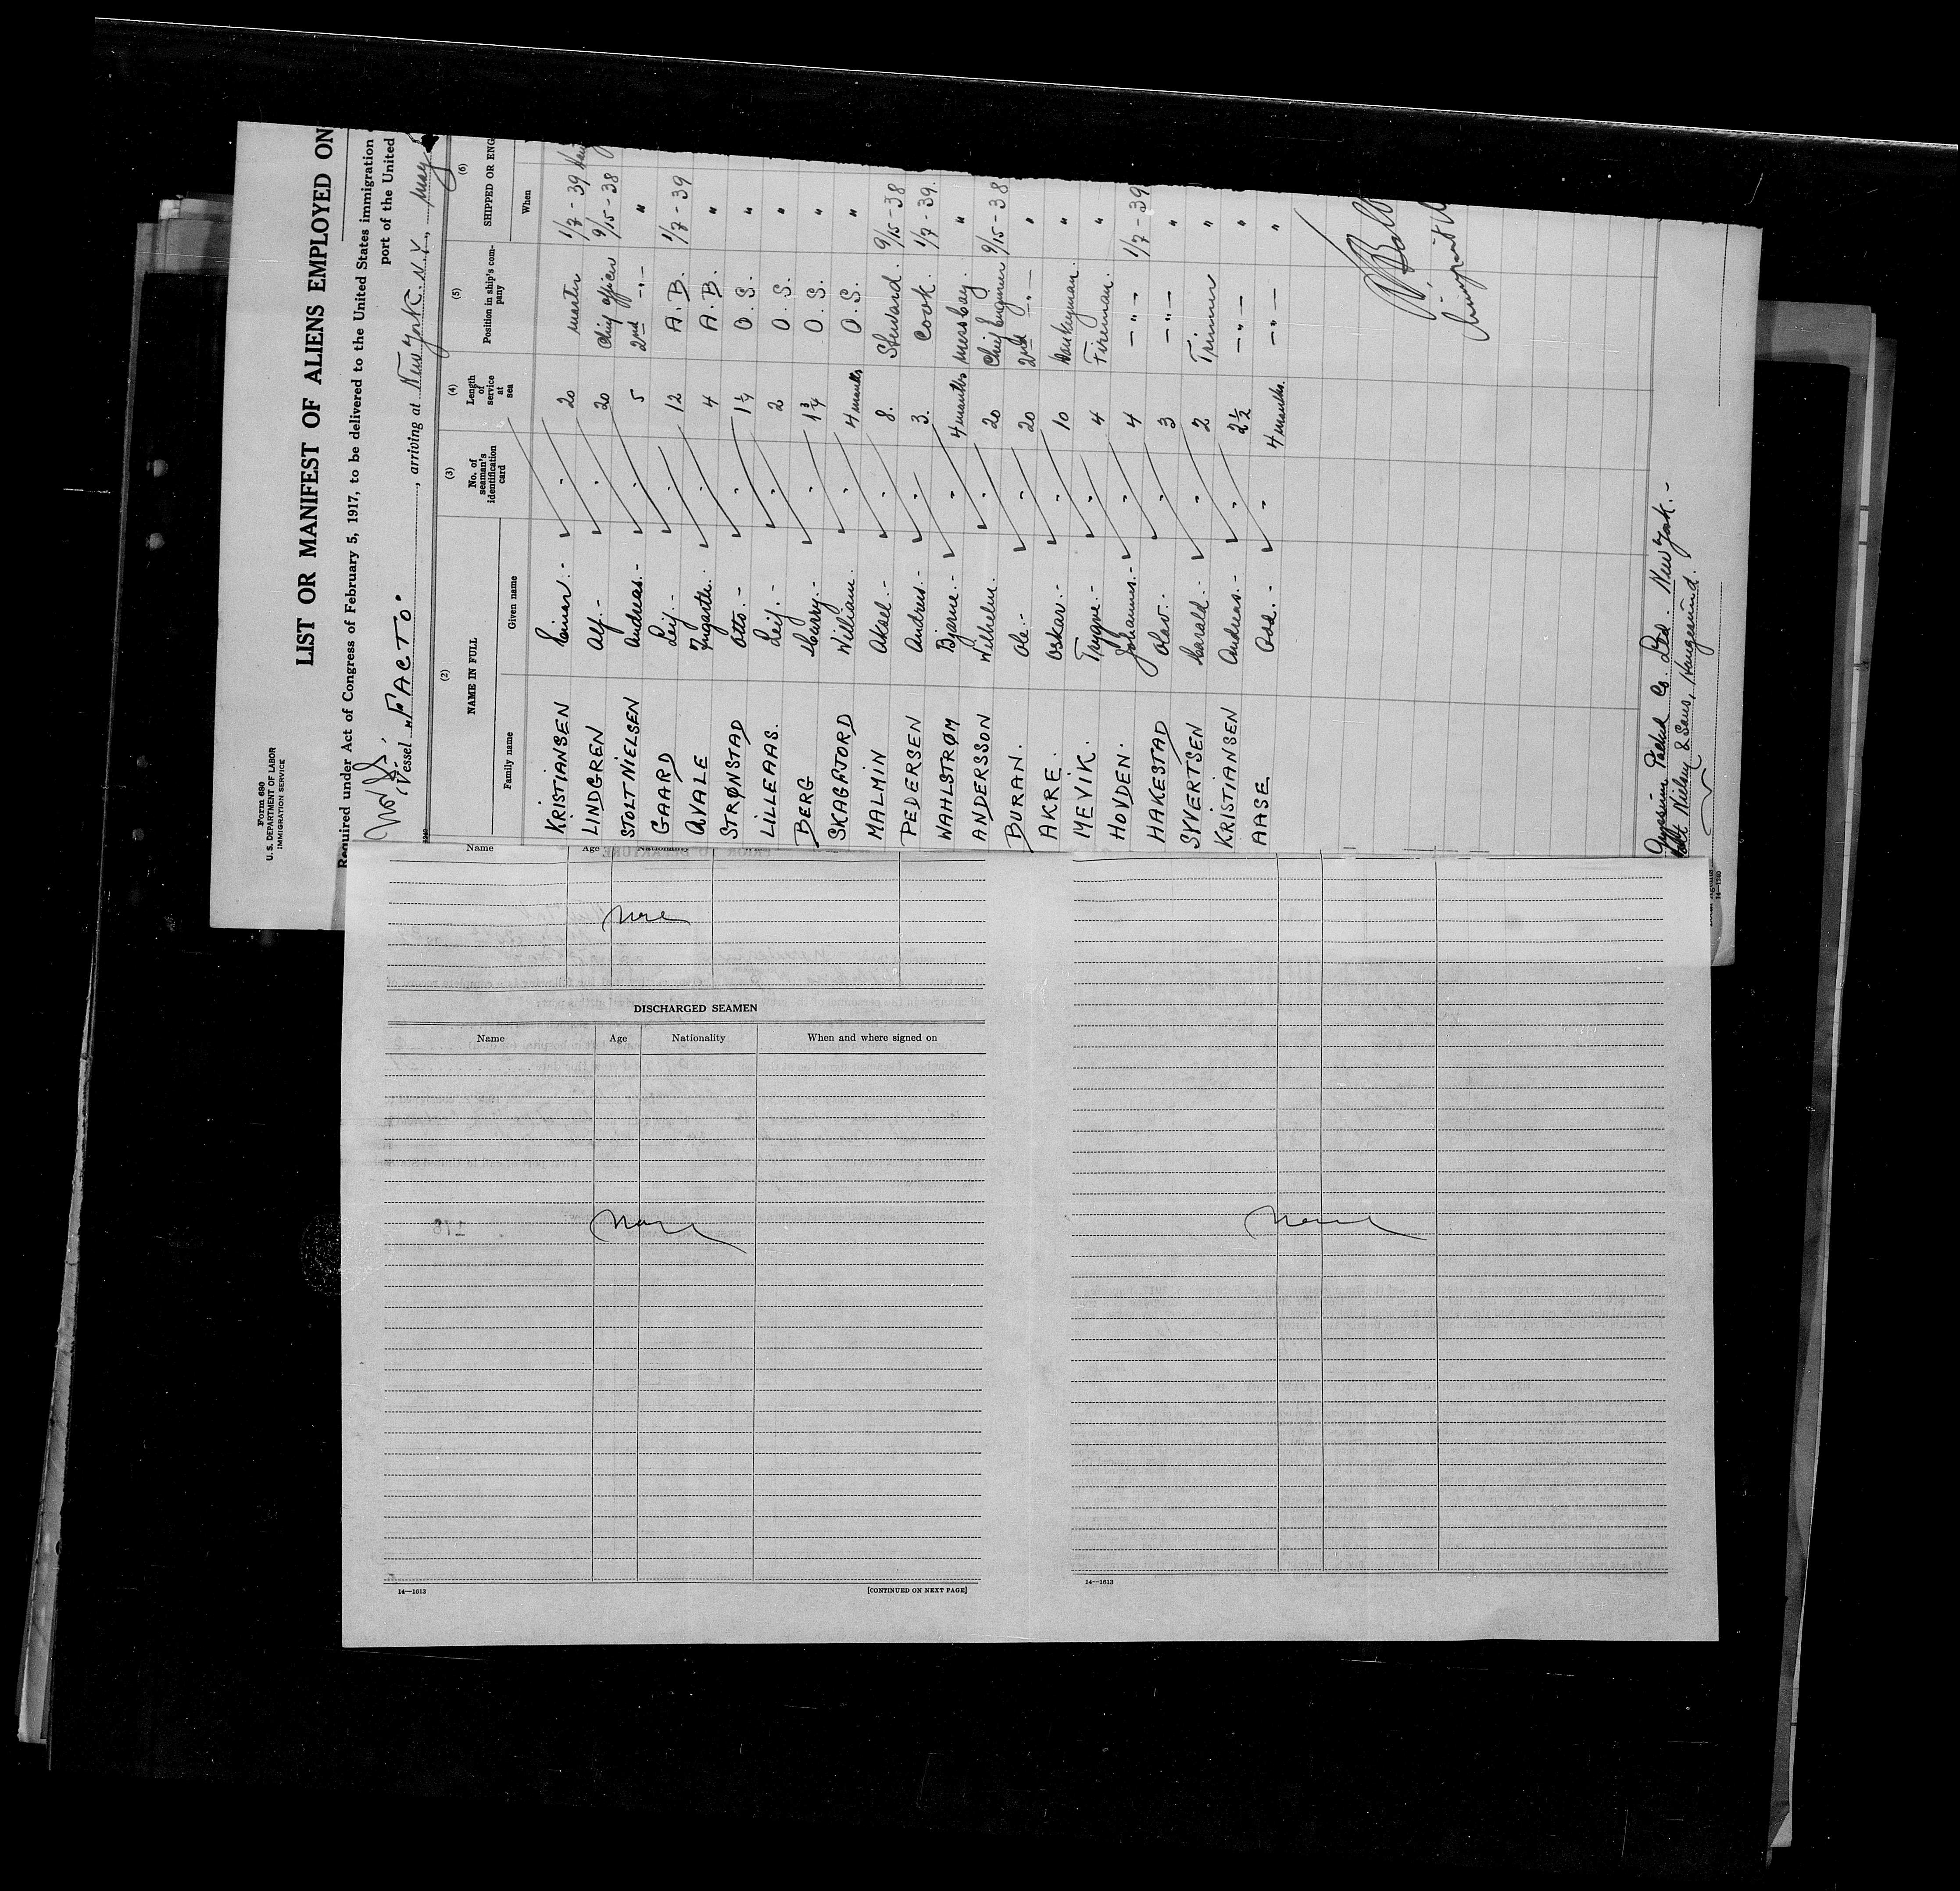 Form 680
U. S. DEPARTMENT OF LABOR
IMMIGRATION SERVICE
LIST OR MANIFEST OF ALIENS EMPLOYED ON
Required under Act of Congress of February 5, 1917, to be delivered to the United States immigration
port of the United
Vessel "FACTO", arriving at New York. N.Y., May
(2) (3) (4) (5) (6)
NAME IN FULL No. of seaman's identification card Length of service at sea Position in ship's company SHIPPED OR ENG
Family name Given name When
KRISTIANSEN Einar.- - 20 master 1/7 - 39
LINDGREN Alf.- - 20 Chief officer 9/15 - 38
STOLT NIELSEN Andreas.- - 5 2nd -"- "
GAARD Leif.- - 12 A.B. 1/7 - 39
QVALE - 4 A.B. "
STRØNSTAD Otto.- - 1 1/4 O.S. "
LILLEAAS. Leif.- - 2 O.S. "
BERG Harry.- - 1 3/4 O.S. "
SKAGFJORD William. - 4 months O.S. "
MALMIN Aksel.- - 8. Steward. 9/15 - 38
PEDERSEN Andrus.- - 3. Cook. 1/7 - 39.
WAHLSTRØM Bjarne.- - 4 months messboy. "
ANDERSSON Wilhelm. - 20 Chief Engineer 9/15 - 38
BURAN. Ole.- - 20 2nd -"- "
AKRE. Oskar.- - 10 Donkeyman. "
MEVIK. Trygve.- - 4 Fireman. "
HOVDEN. Johannes.- - 4 -"- 1/7 - 39
HAKESTAD Olav.- - 3 -"- "
SYVERTSEN Harald.- - 2 Trimmer "
KRISTIANSEN Andreas.- - 2 1/2 -"- "
AASE Odd.- - 4 months. -"- "
Co. Ltd. New York.-
Nielsen & Sons, Haugesund.
14—1240
Name Age Nationality
None
DISCHARGED SEAMEN
Name Age Nationality When and where signed on
None
14—1613 [CONTINUED ON NEXT PAGE]
None
14—1613